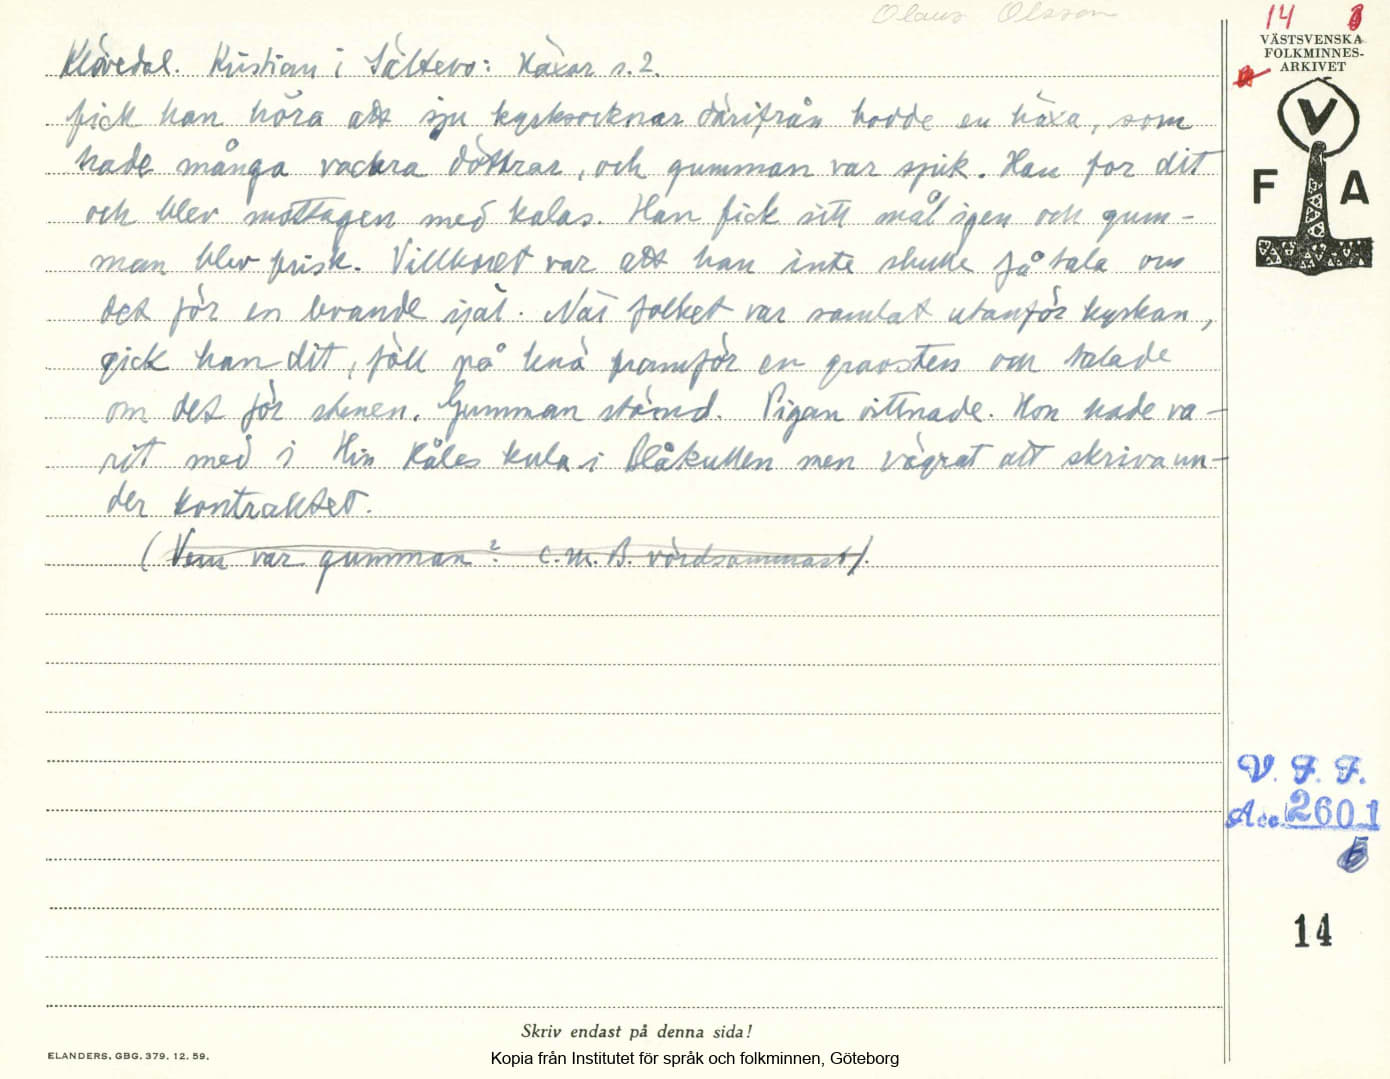 Olaus Olsson
14
VÄSTSVENSKA
FOLKMINNES-
ARKIVET
V
F A
Klövedal. Kristian i Sältevo: Häxor s. 2.
fick han höra att sju kyrksocknar därifrån bodde en häxa, som
hade många vackra döttrar, och gumman var sjuk. Han for dit
och blev mottagen med kalas. Han fick sitt mål igen och gum-
man blev frisk. Villkoret var att han inte skulle få tala om
det för en levande själ. När folket var samlat utanför kyrkan,
gick han dit, föll på knä framför en gravsten och talade
om det för stenen. Gumman stämd. Pigan vittnade. Hon hade va-
rit med i Hin Kåles kula i Blåkullen men vägrat att skriva un-
der kontraktet.
(Vem var gumman? C.M.B. vördsammast).
V. F. F.
Acc. 2601
14
Skriv endast på denna sida!
ELANDERS, GBG. 379. 12. 59.
Kopia från Institutet för språk och folkminnen, Göteborg